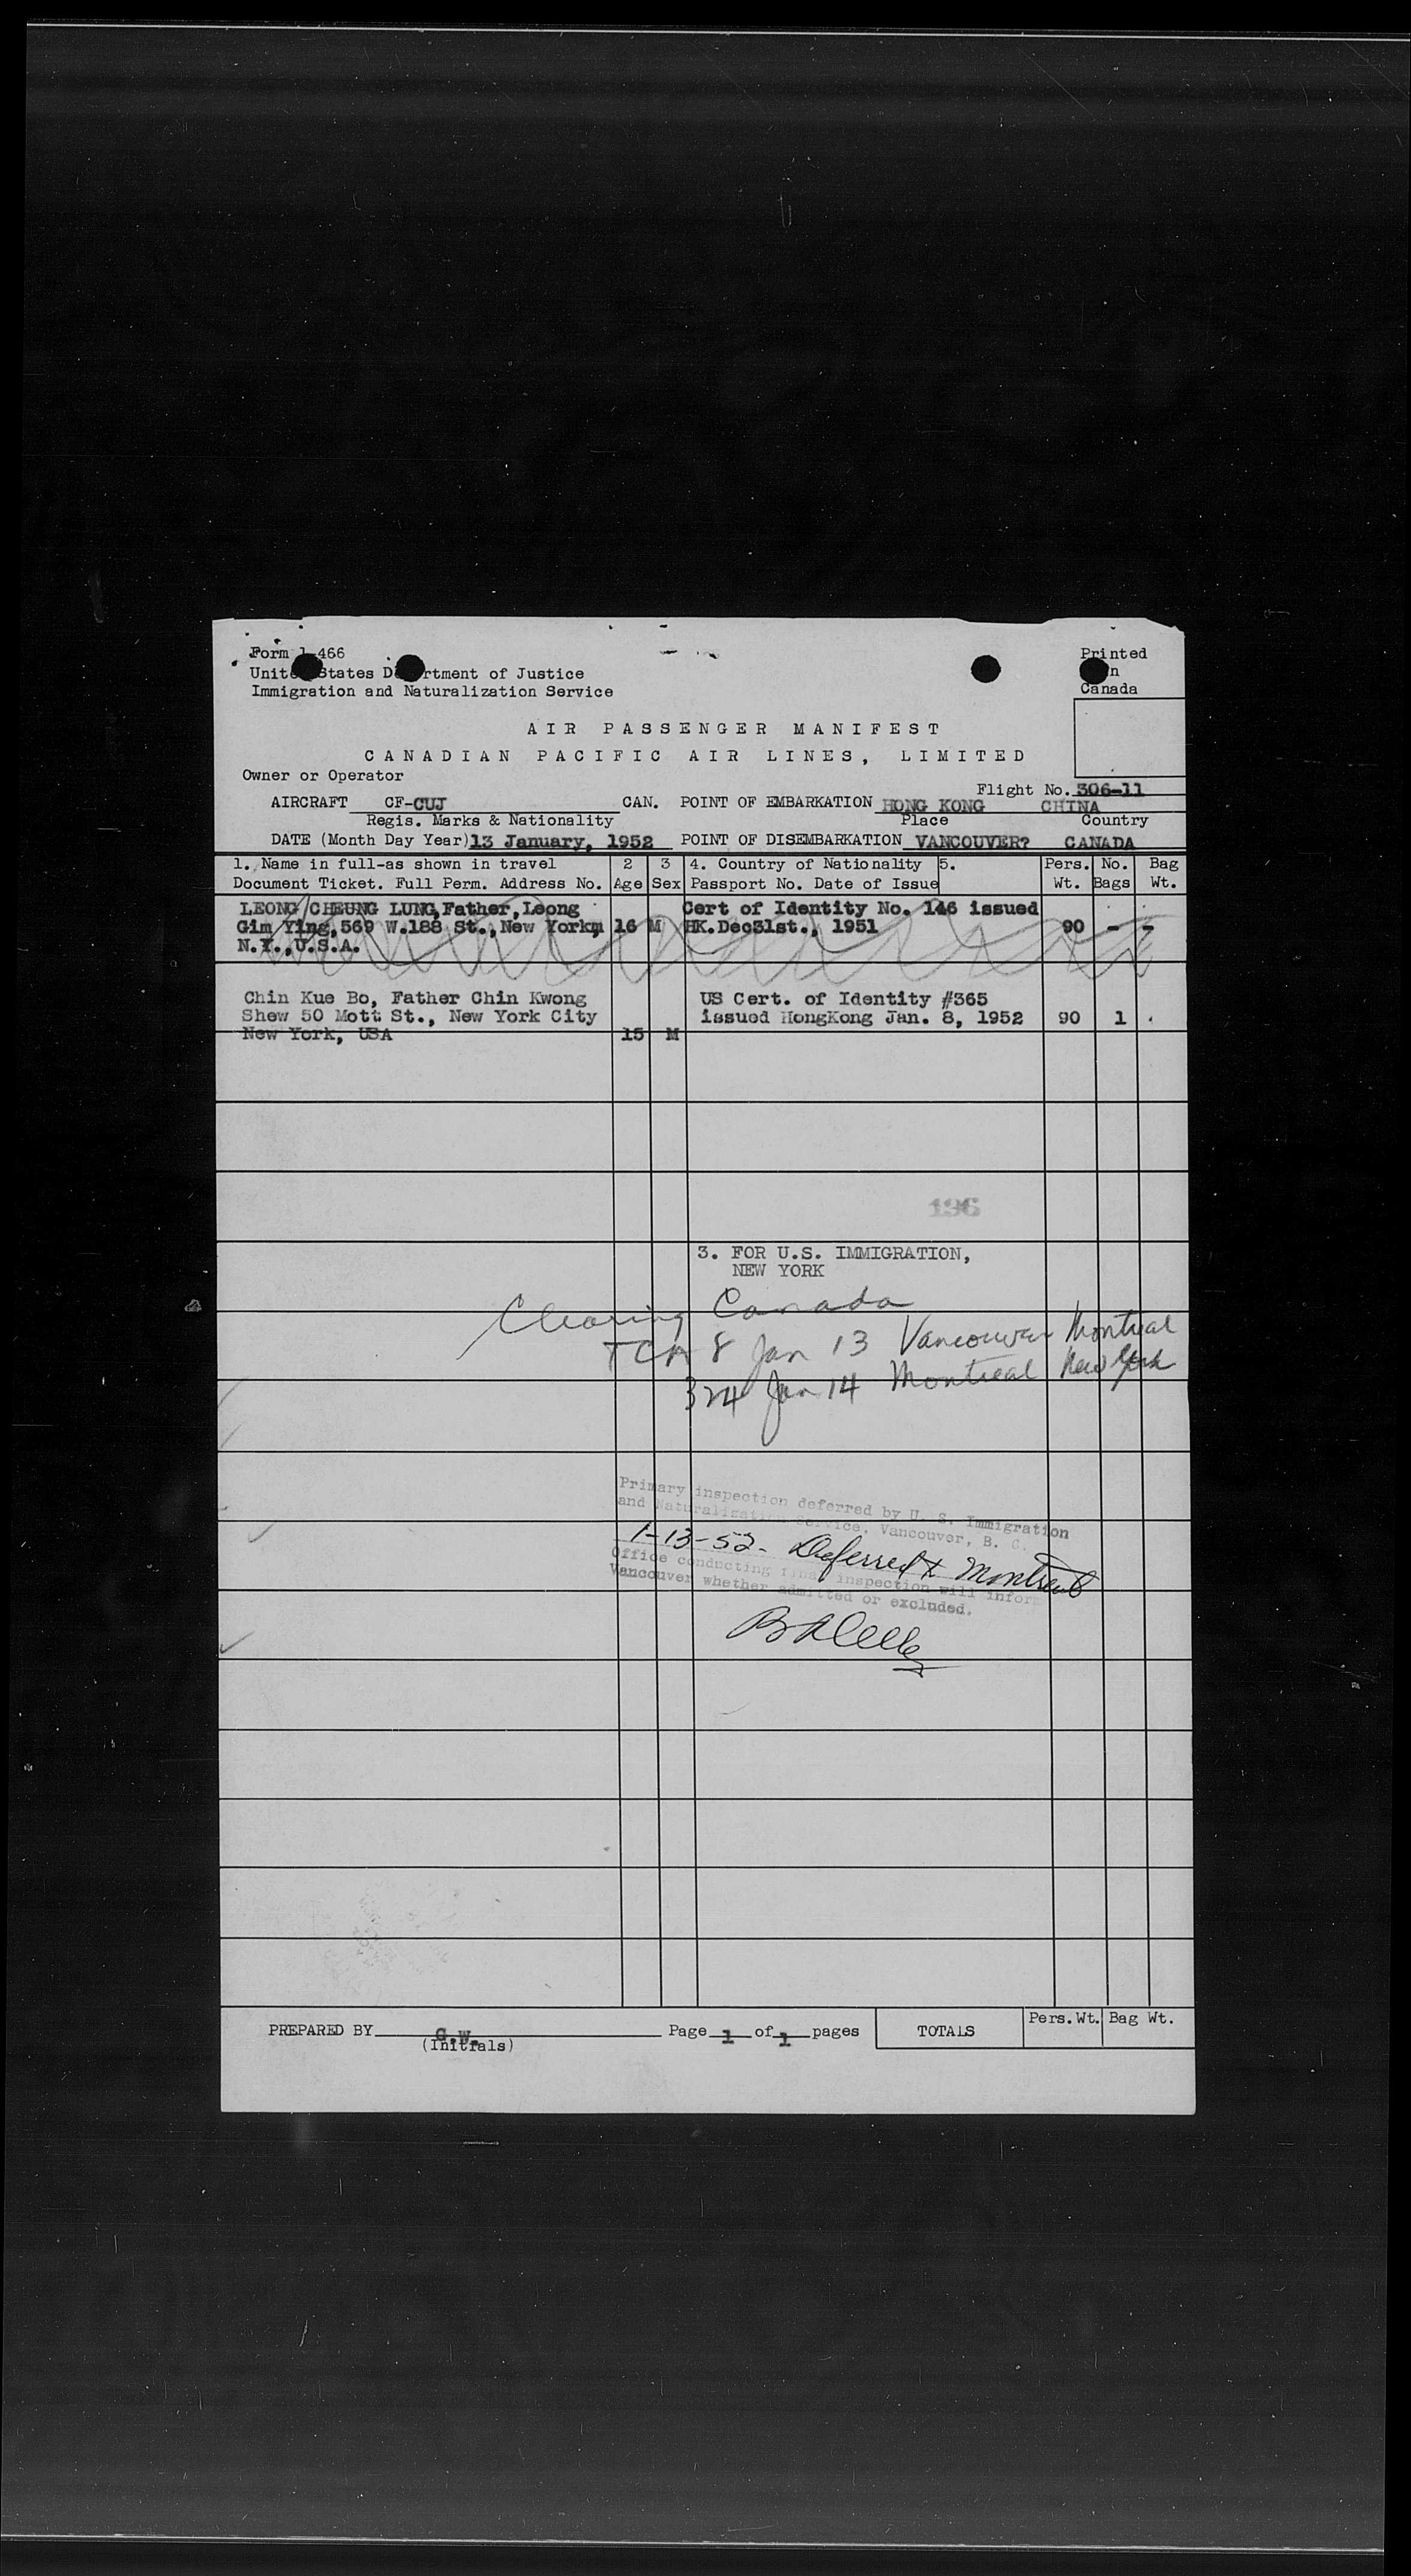 Form 1-466
Printed
United States Department of Justice
in
Immigration and Naturalization Service
Canada
AIR PASSENGER MANIFEST
CANADIAN PACIFIC AIR LINES, LIMITED
Owner or Operator
Flight No. 306-11
AIRCRAFT CF-CUJ CAN. POINT OF EMBARKATION HONG KONG CHINA
Regis. Marks & Nationality Place Country
DATE (Month Day Year) 13 January, 1952 POINT OF DISEMBARKATION VANCOUVER? CANADA
1. Name in full-as shown in travel 2 3 4. Country of Nationality 5. Pers. No. Bag
Document Ticket. Full Perm. Address No. Age Sex Passport No. Date of Issue Wt. Bags Wt.
LEONG CHEUNG LUNG, Father, Leong Cert of Identity No. 146 issued
Gim Ying, 569 W.188 St., New York, 16 M HK. Dec31st., 1951 90 - -
N.Y., U.S.A.
Chin Kue Bo, Father Chin Kwong US Cert. of Identity #365
Shew 50 Mott St., New York City issued HongKong Jan. 8, 1952 90 1
New York, USA 15 M
196
3. FOR U.S. IMMIGRATION,
NEW YORK
Clearing Canada
TCA 8 Jan 13 Vancouver Montreal
324 Jan 14 Montreal New York
Primary inspection deferred by U. S. Immigration
and Naturalization Service, Vancouver, B. C.
1-13-52. Deferred to Montreal
Office conducting final inspection will inform
Vancouver whether admitted or excluded.
PREPARED BY G.W. Page 1 of 1 pages TOTALS Pers.Wt. Bag Wt.
(Initials)